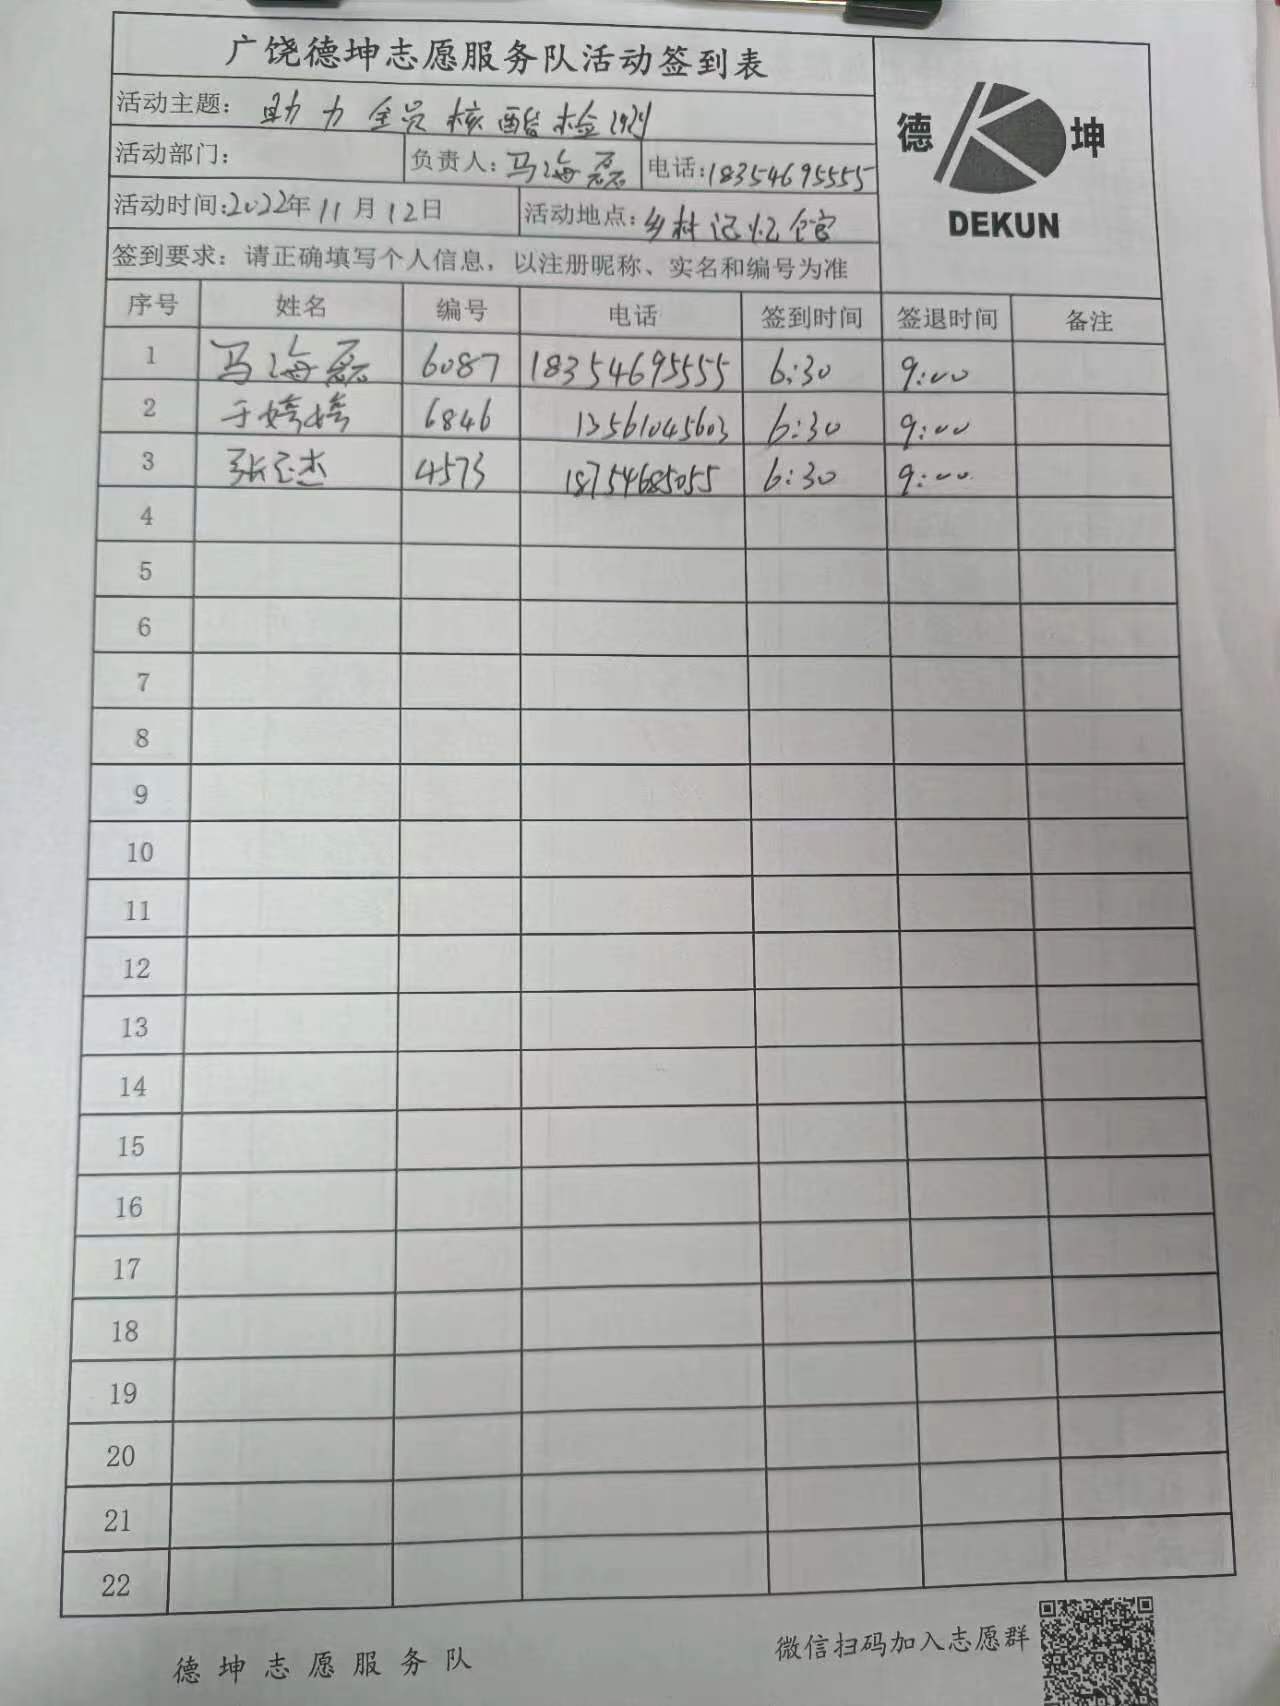 广饶德坤志愿服务队活动签到表
德 坤
DEKUN
活动主题: 助力全员核酸检测
活动部门: 负责人: 马海磊 电话: 18354695555
活动时间: 2022年11月12日 活动地点: 乡村记忆馆
签到要求: 请正确填写个人信息，以注册昵称、实名和编号为准
序号 姓名 编号 电话 签到时间 签退时间 备注
1 马海磊 6087 18354695555 6:30 9:00
2 于婷婷 6846 13561045603 6:30 9:00
3 张玉杰 4573 18754685055 6:30 9:00
4
5
6
7
8
9
10
11
12
13
14
15
16
17
18
19
20
21
22
德坤志愿服务队 微信扫码加入志愿群